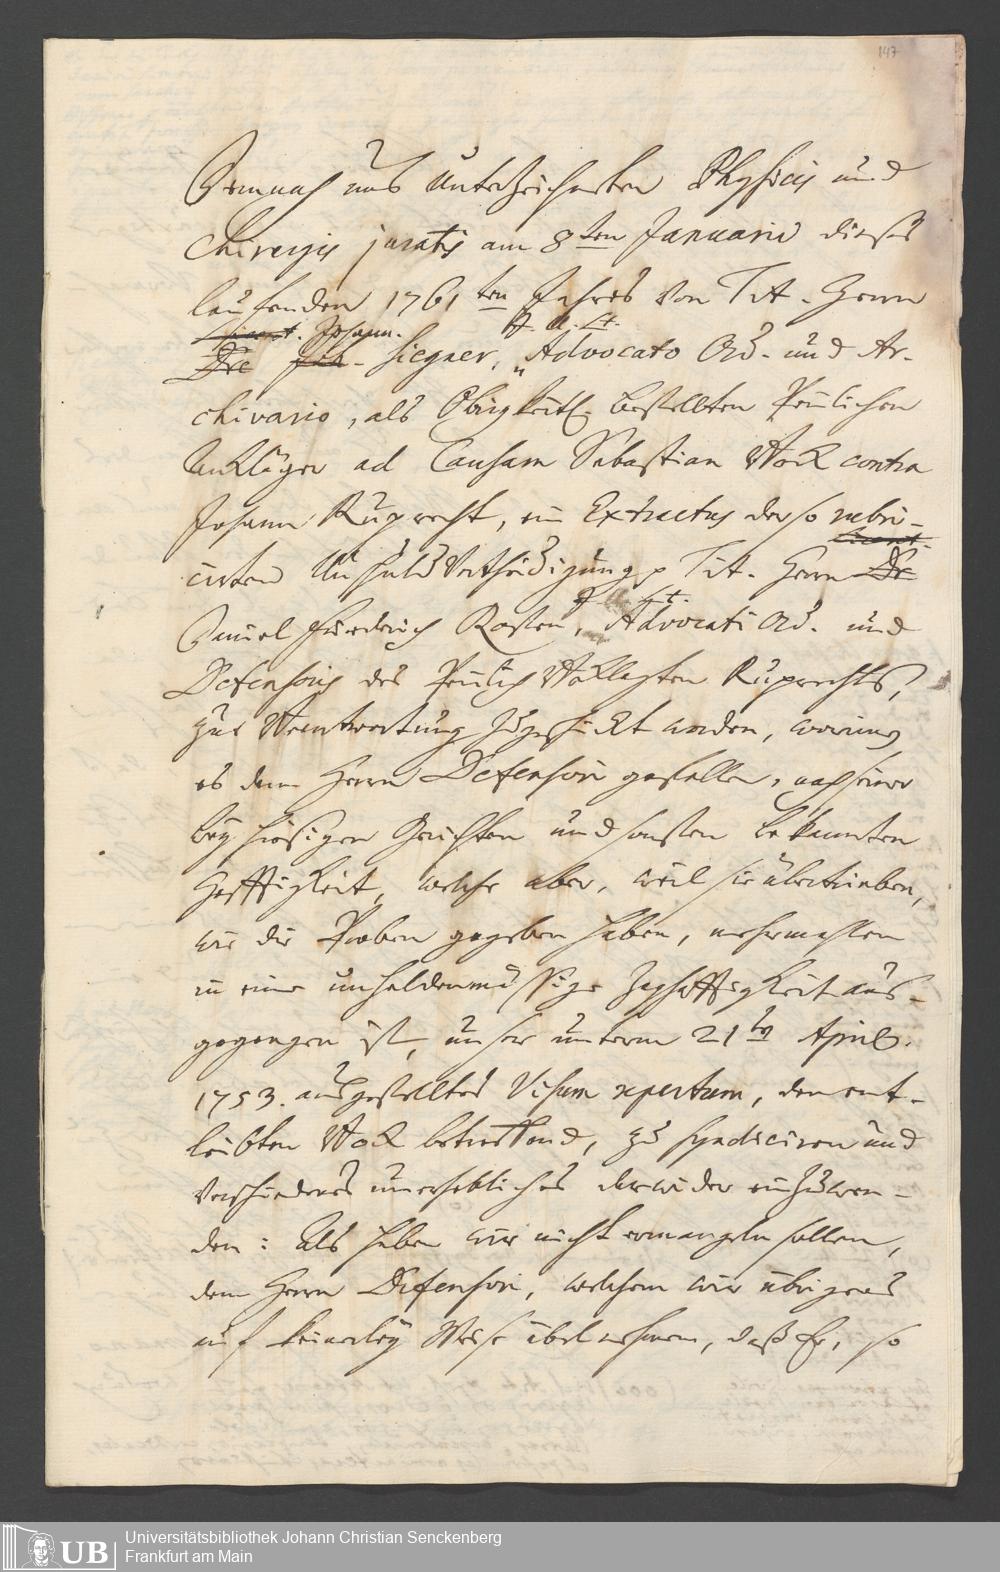 147
Demnach uns Unterzeichneten Physicis und
Chirurgis juratis am 8ten Januarii dieses
laufenden 1761ten Jahres von Tit. Herrn
Licent. Johann.
Dre Joh. Siegner, Advocato Ord. und Ar-
chivario, als Obrigkeitl. bestellten Peinlichen
Ankläger ad Causam Sebastian Hock contra
Johann Ruprecht, ein Extractus der so rubri-
Licent.
cirten Unschuld Vertheidigung p Tit. Herrn Dr
Daniel Friedrich Kosten, Advocati Ord. und
Defensoris des Peinlich Angeklagten Ruprechts,
zur Verantwortung zugeschickt worden, worinnen
es dem Herrn Defensori gefallen, nach seiner
bey hiesigen Gerichten und sonsten bekannten
Hefftigkeit, welche aber, weil sie übertrieben,
wie die Proben gegeben haben, mehrmahlen
in eine unheldenmäßige Zaghafftigkeit aus-
gegangen ist, unser unterm 21ten April.
1753. ausgestelltes Visum repertum, den ent-
leibten Hock betreffend, zu syndiciren und
verschiedenes unerhebliches darwider einzuwen-
den: Als haben wir nicht ermangeln sollen,
dem Herrn Defensori, welchem wir übrigens
auf keinerley Weise übel nehmen, daß Er, so
UB
Universitätsbibliothek Johann Christian Senckenberg
Frankfurt am Main